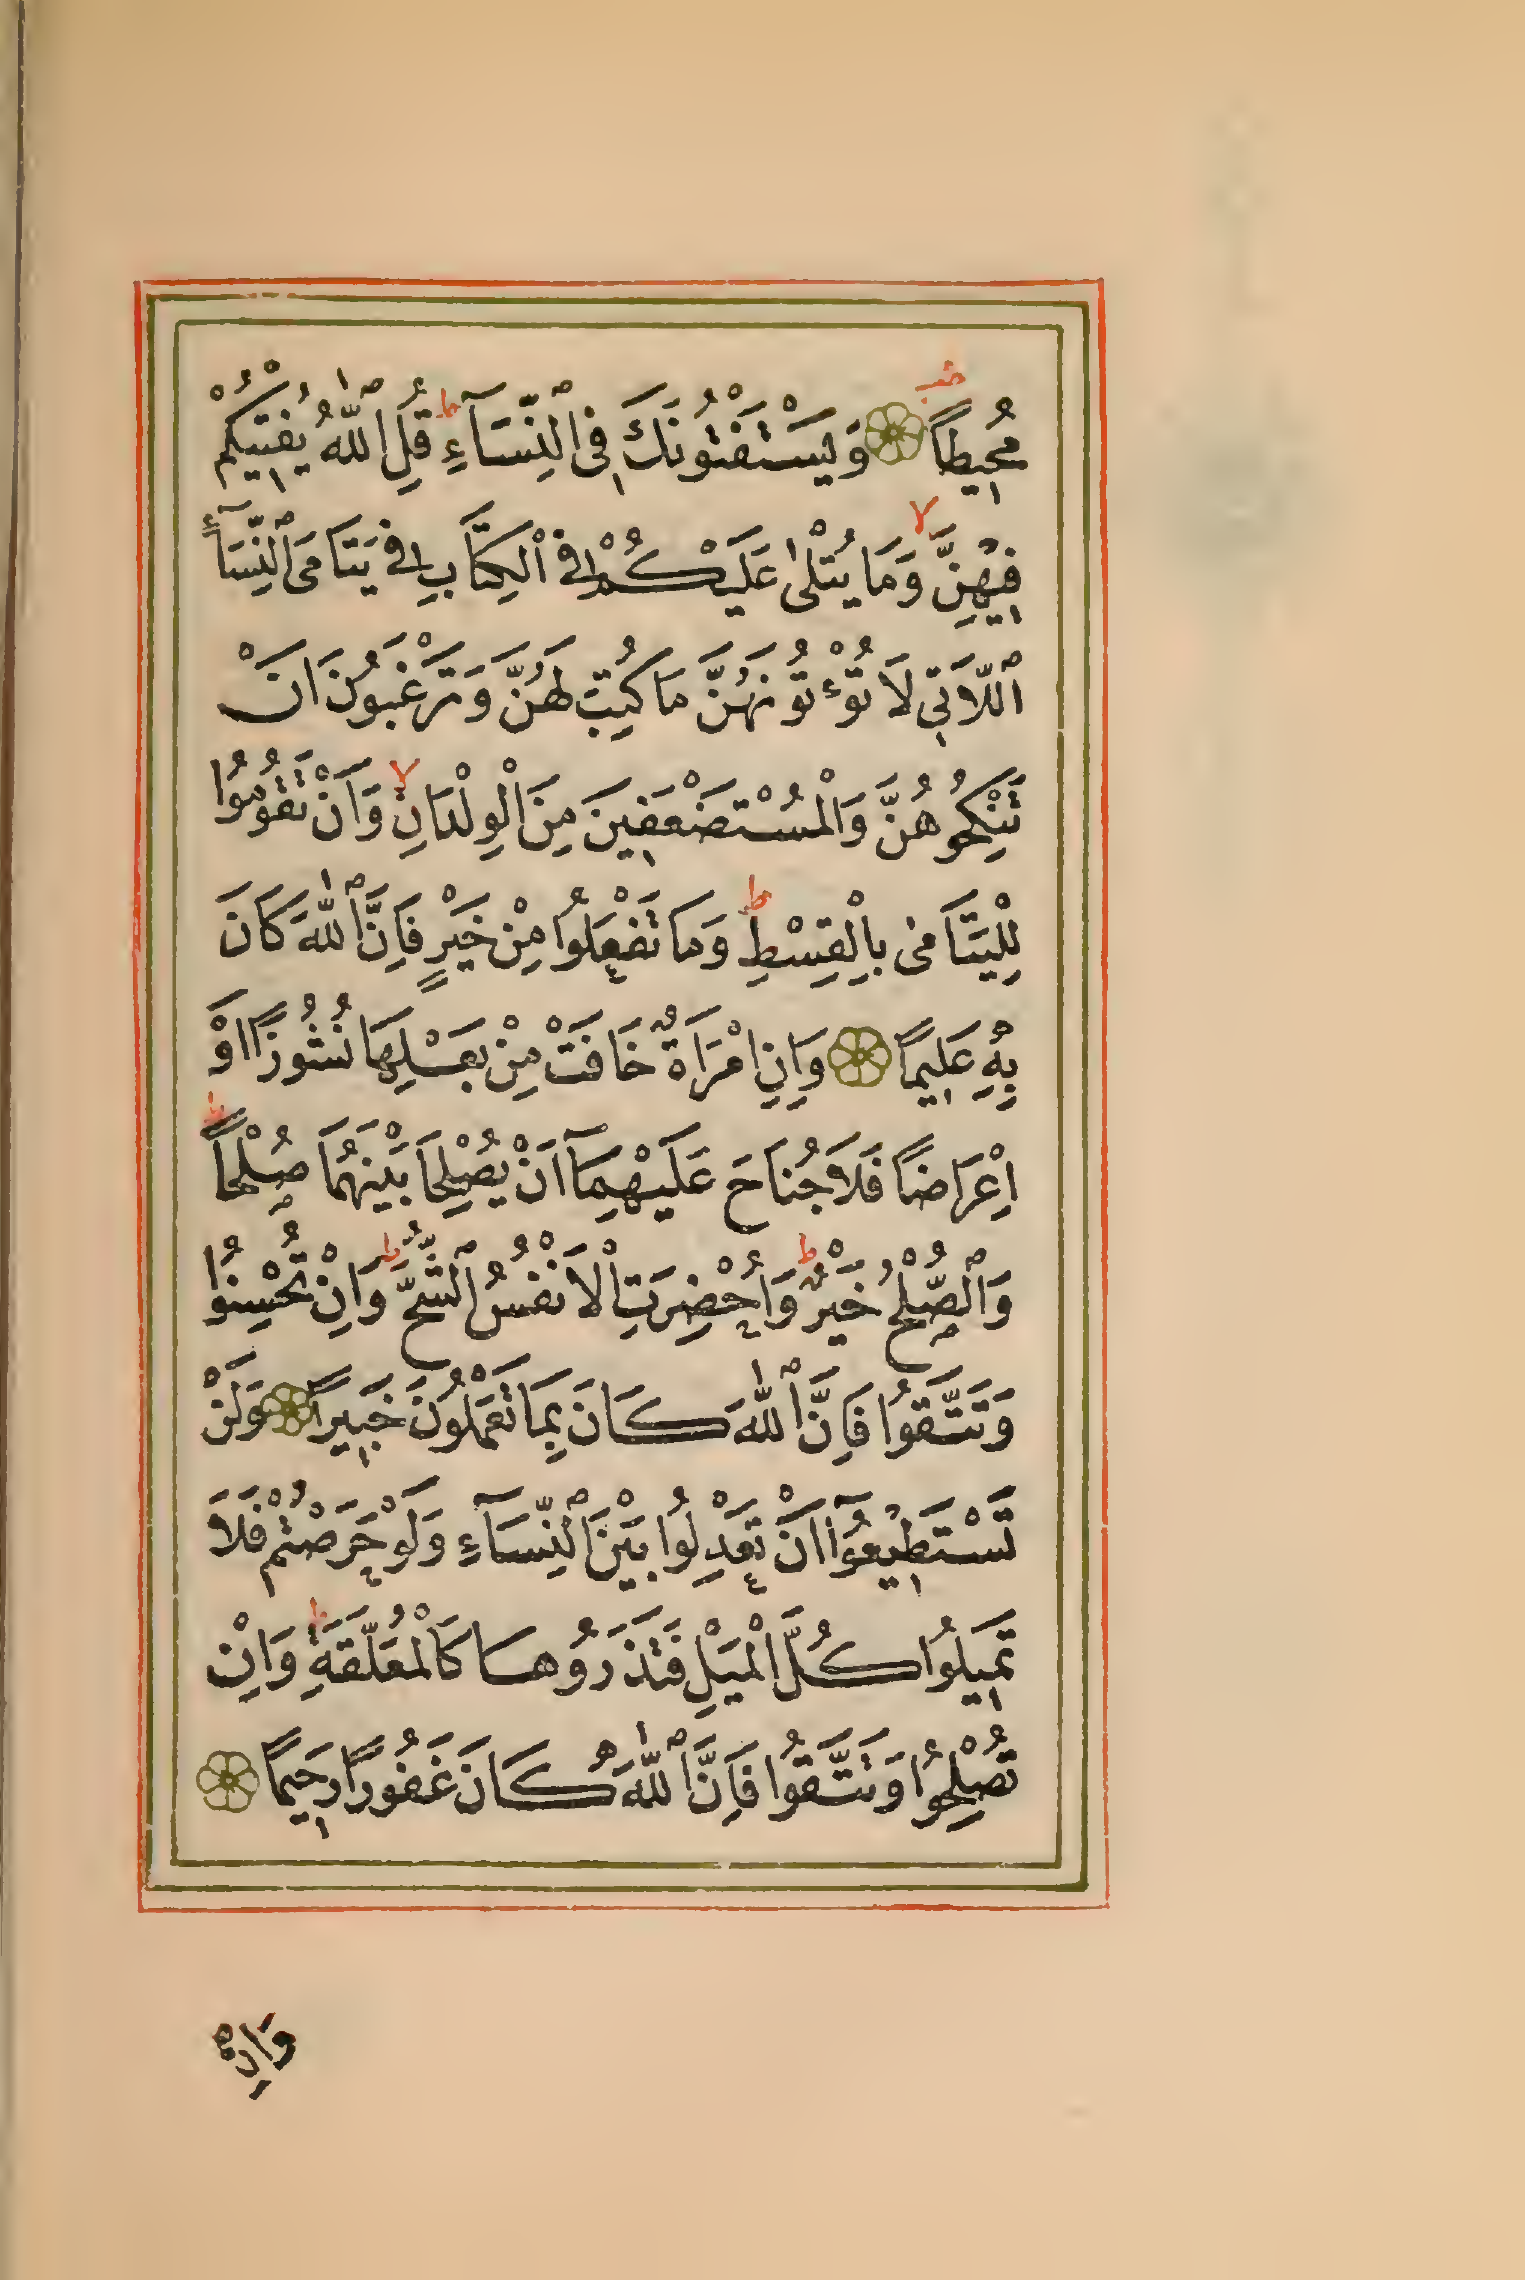 مُحِيطًا وَيَسْتَفْتُونَكَ فِي النِّسَآءِ قُلِ اللّٰهُ يُفْتِيكُمْ
فِيهِنَّ وَمَا يُتْلٰى عَلَيْكُمْ فِي الْكِتَابِ فِي يَتَامَى النِّسَآءِ
اللَّاتِي لَا تُؤْتُونَهُنَّ مَا كُتِبَ لَهُنَّ وَتَرْغَبُونَ اَنْ
تَنْكِحُوهُنَّ وَالْمُسْتَضْعَفِينَ مِنَ الْوِلْدَانِ وَاَنْ تَقُومُوا
لِلْيَتَامٰى بِالْقِسْطِ وَمَا تَفْعَلُوا مِنْ خَيْرٍ فَاِنَّ اللّٰهَ كَانَ
بِهِ عَلِيمًا وَاِنِ امْرَاَةٌ خَافَتْ مِنْ بَعْلِهَا نُشُوزًا اَوْ
اِعْرَاضًا فَلَا جُنَاحَ عَلَيْهِمَآ اَنْ يُصْلِحَا بَيْنَهُمَا صُلْحًا
وَالصُّلْحُ خَيْرٌ وَاُحْضِرَتِ الْاَنْفُسُ الشُّحَّ وَاِنْ تُحْسِنُوا
وَتَتَّقُوا فَاِنَّ اللّٰهَ كَانَ بِمَا تَعْمَلُونَ خَبِيرًا وَلَنْ
تَسْتَطِيعُوٓا اَنْ تَعْدِلُوا بَيْنَ النِّسَآءِ وَلَوْ حَرَصْتُمْ فَلَا
تَمِيلُوا كُلَّ الْمَيْلِ فَتَذَرُوهَا كَالْمُعَلَّقَةِ وَاِنْ
تُصْلِحُوا وَتَتَّقُوا فَاِنَّ اللّٰهَ كَانَ غَفُورًا رَحِيمًا
وَاِنْ